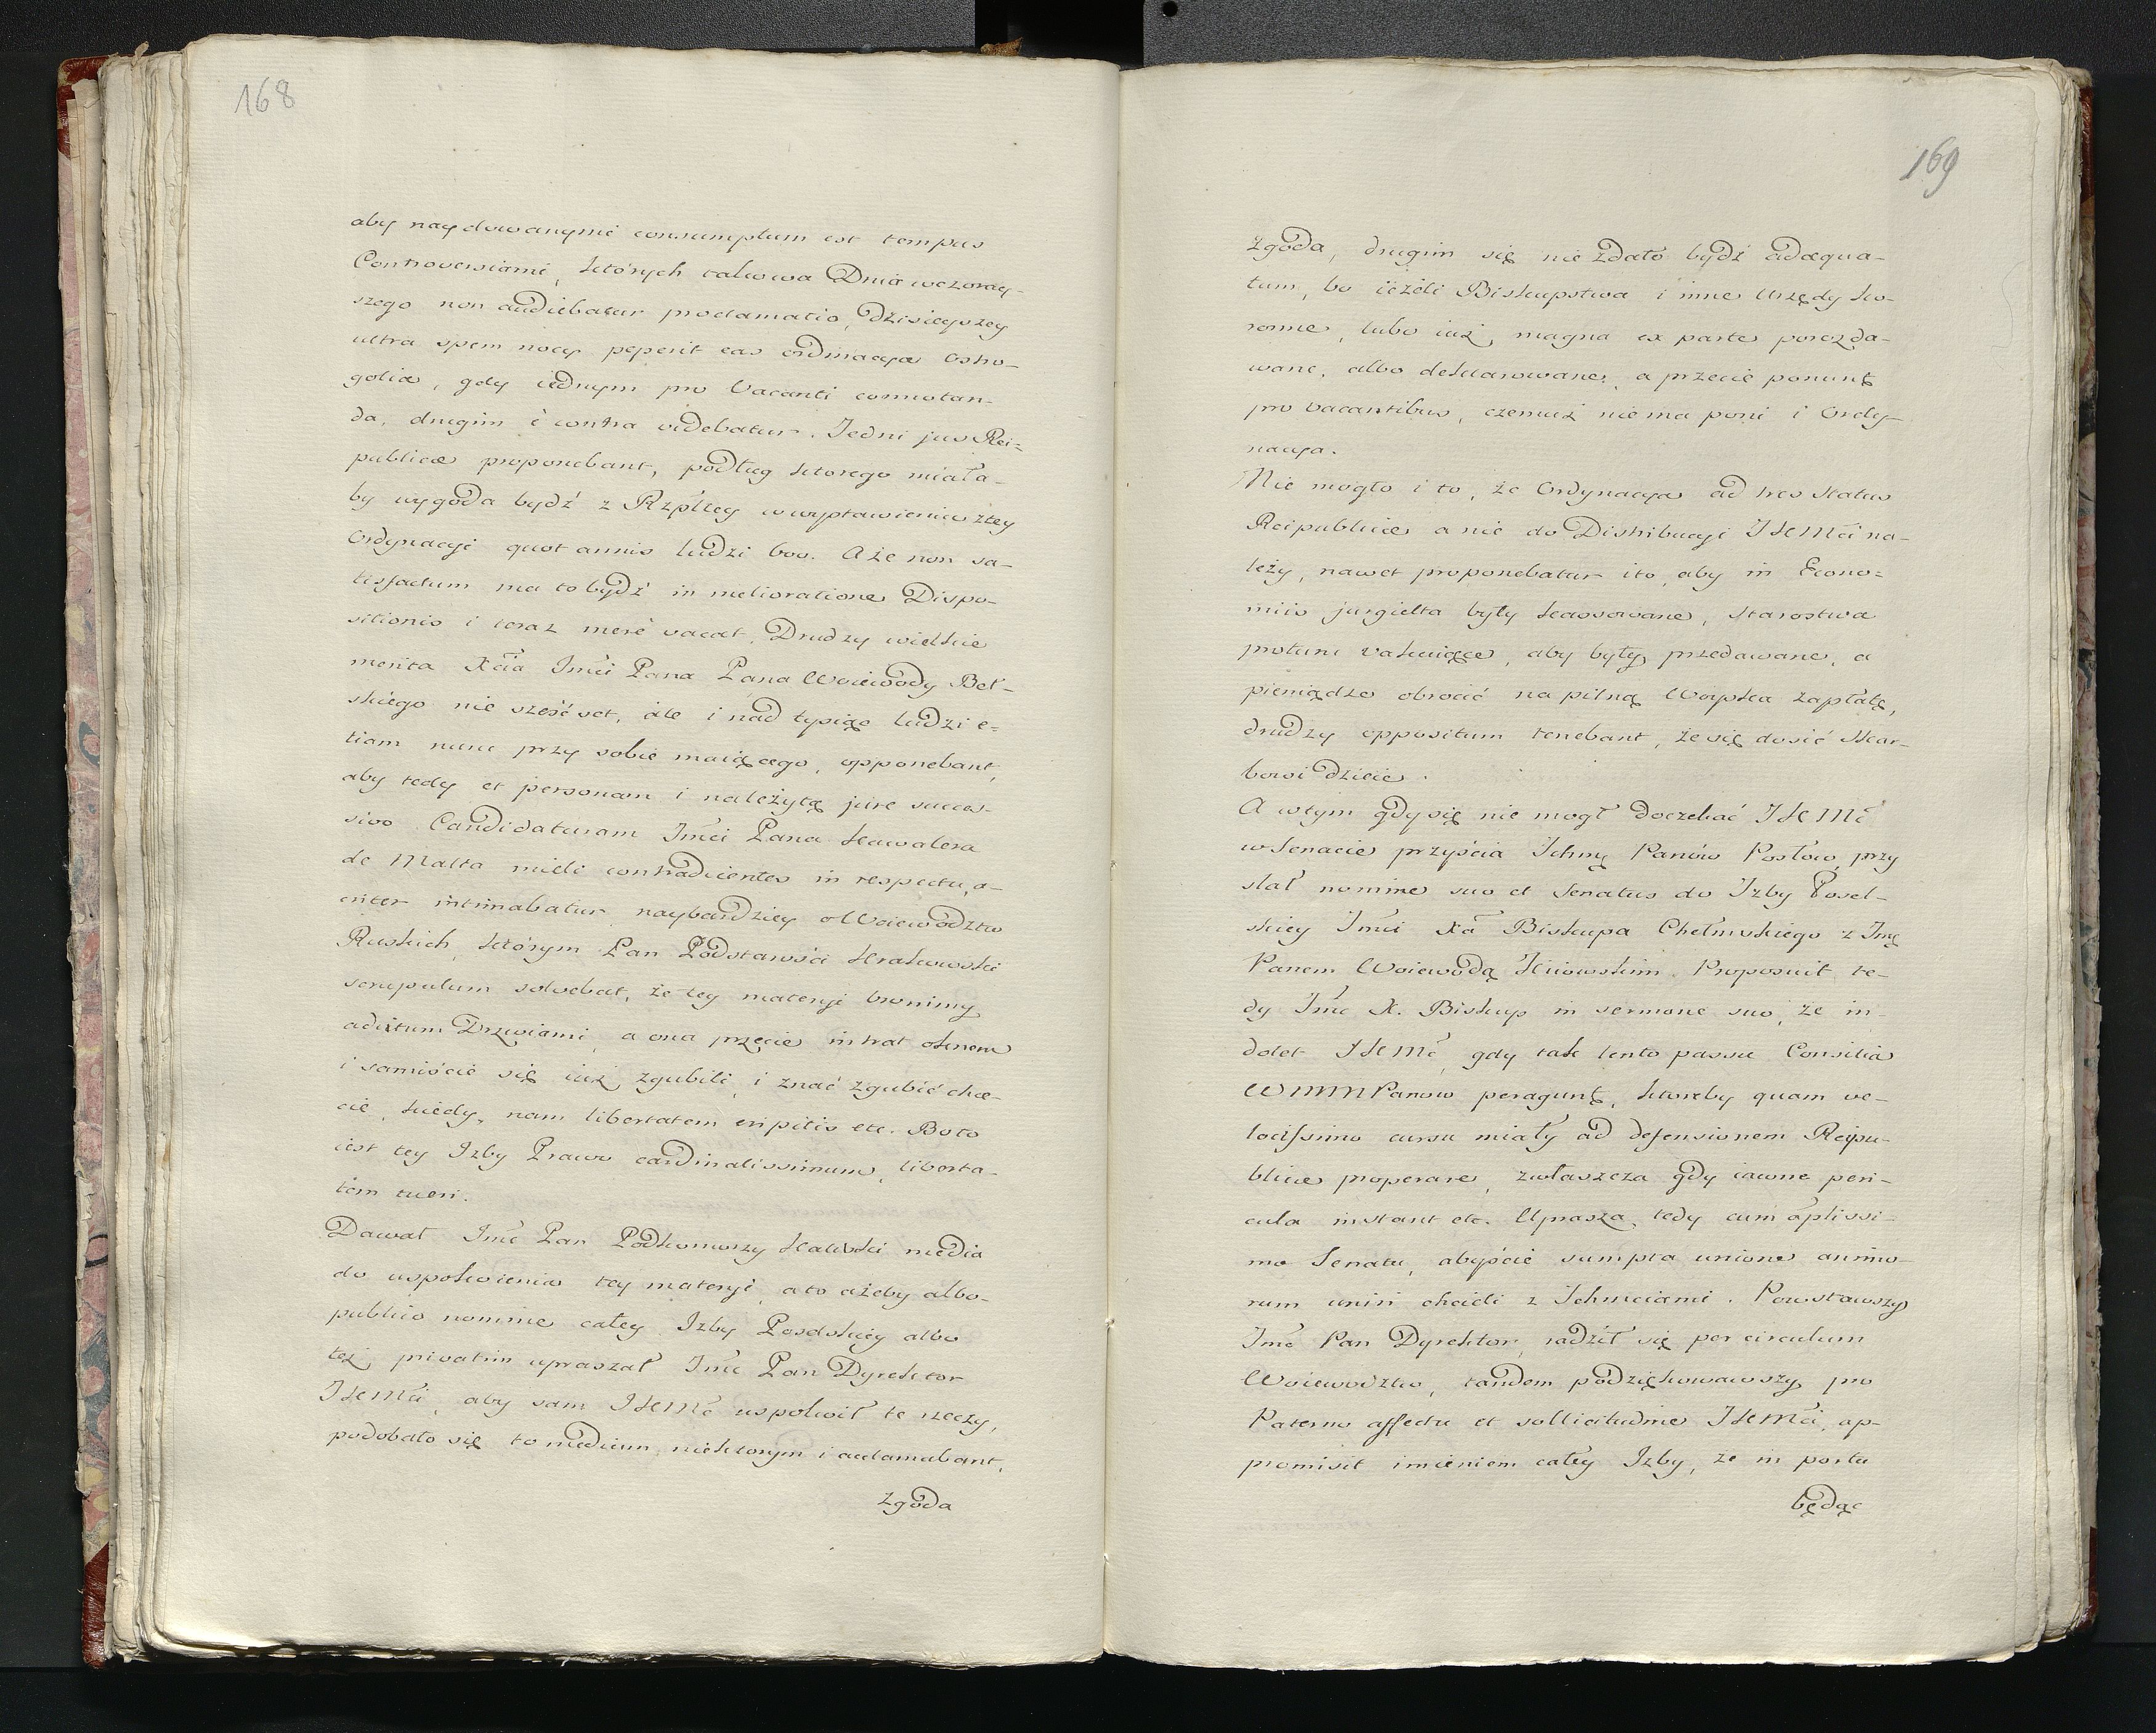 168
aby naydowanymi consumptum est tempus
Controversiami, których takowa Dnia wczoray-
szego non audiebatur proclamatio, dzisieyszey
ultra spem nocy peperit eas ordinacya Ostro-
goliæ, gdy iednym pro Vacanti connotan-
da, drugim è contra videbatur. Jedni jus Rei-
publicæ proponebant, podług ktorego miała-
by wygoda bydź z Rzpltey w wyprawieniu ztey
Ordynacyi quot annis ludzi 600. Aże non sa-
tisfactum ma to bydź in melioratione Dispo-
sitionis i teraz merè vacat, Drudzy wielkie
merita Xcia Imci Pana Pana Woiewody Beł-
skiego nie sześćset, ale i nad tysiąc ludzi e-
tiam nunc przy sobie maiącego, opponebant,
aby tedy et personam i należytą jure succes-
sivo Candidaturam Imci Pana Kawalera
de Malta mieli contradicentes in respectu, a-
criter intimabatur naybardziey o Woiewodztw
Ruskich, którym Pan Podstarości Krakowski
scrupulum solvebat, że tey materyi bronimy
aditum Drzwiami, a ona przecie intrat oknem
i samiście się iuż zgubili, i znać zgubić chce-
cie, kiedy nam libertatem eripitis etc. Bo to
iest tey Izby Prawo cardinalissimum, liberta-
tem tueri.
Dawał Imć Pan Podkomorzy Halicki media
do uspokoienia tey materyi, a to ażeby albo
publico nomine całey Izby Poselskiey albo
też privatim upraszał Imć Pan Dyrektor
JKMci, aby sam JKMć uspokoił te rzeczy,
podobało się to medium niektorym i acclamabant,
zgoda
169
zgoda, drugim się nie zdało bydź adæqua-
tum, bo ieżeli Biskupstwa i inne Urzędy ko-
ronne, lubo iuż magna ex parte porozda-
wane, albo deklarowane, a przecie ponunt
pro vacantibus, czemuż niema poni i Ordy-
nacya.
Nie mogło i to, że Ordynacya ad tres status
Reipublicæ a nie do Distribucyi JKMci na-
leży, nawet proponebatur i to, aby in Econo-
miis jurgielta były kassowane, Starostwa
protunc vakuiące, aby były przedawane, a
pieniądze obrocić na pilną Woyska zapłatę,
drudzy oppositum tenebant, że się dosić Skar-
bowi dzieie.
A wtym gdy się nie mogł doczekać JKMć
w Senacie przyścia Ichmę Panów Posłow, przy
słał nomine suo et Senatus do Izby Posel-
skiey Imci Xa Biskupa Chełmskiego z Imę
Panem Woiewodą Kiiowskim. Proposuit te-
dy Imć X. Biskup in sermone suo, że in-
dolet JKMć, gdy tak lento passu Consilia
WMMPanow peragunt, ktoreby quam ve-
locissimo cursu miały ad defensionem Reipu-
blicæ properare, zwłaszcza gdy iawne peri-
cula instant etc. Uprasza tedy cum amplissi-
mo Senatu, abyście sumpta unione animo-
rum uniri chcieli z Ichmciami. Powstawszy
Imć Pan Dyrektor, radził się per circulum
Woiewodztw, tandem podziękowawszy pro
Paterno affectu et sollicitudine JKMci, ap-
promisit imieniem całey Izby, że in portu
będąc